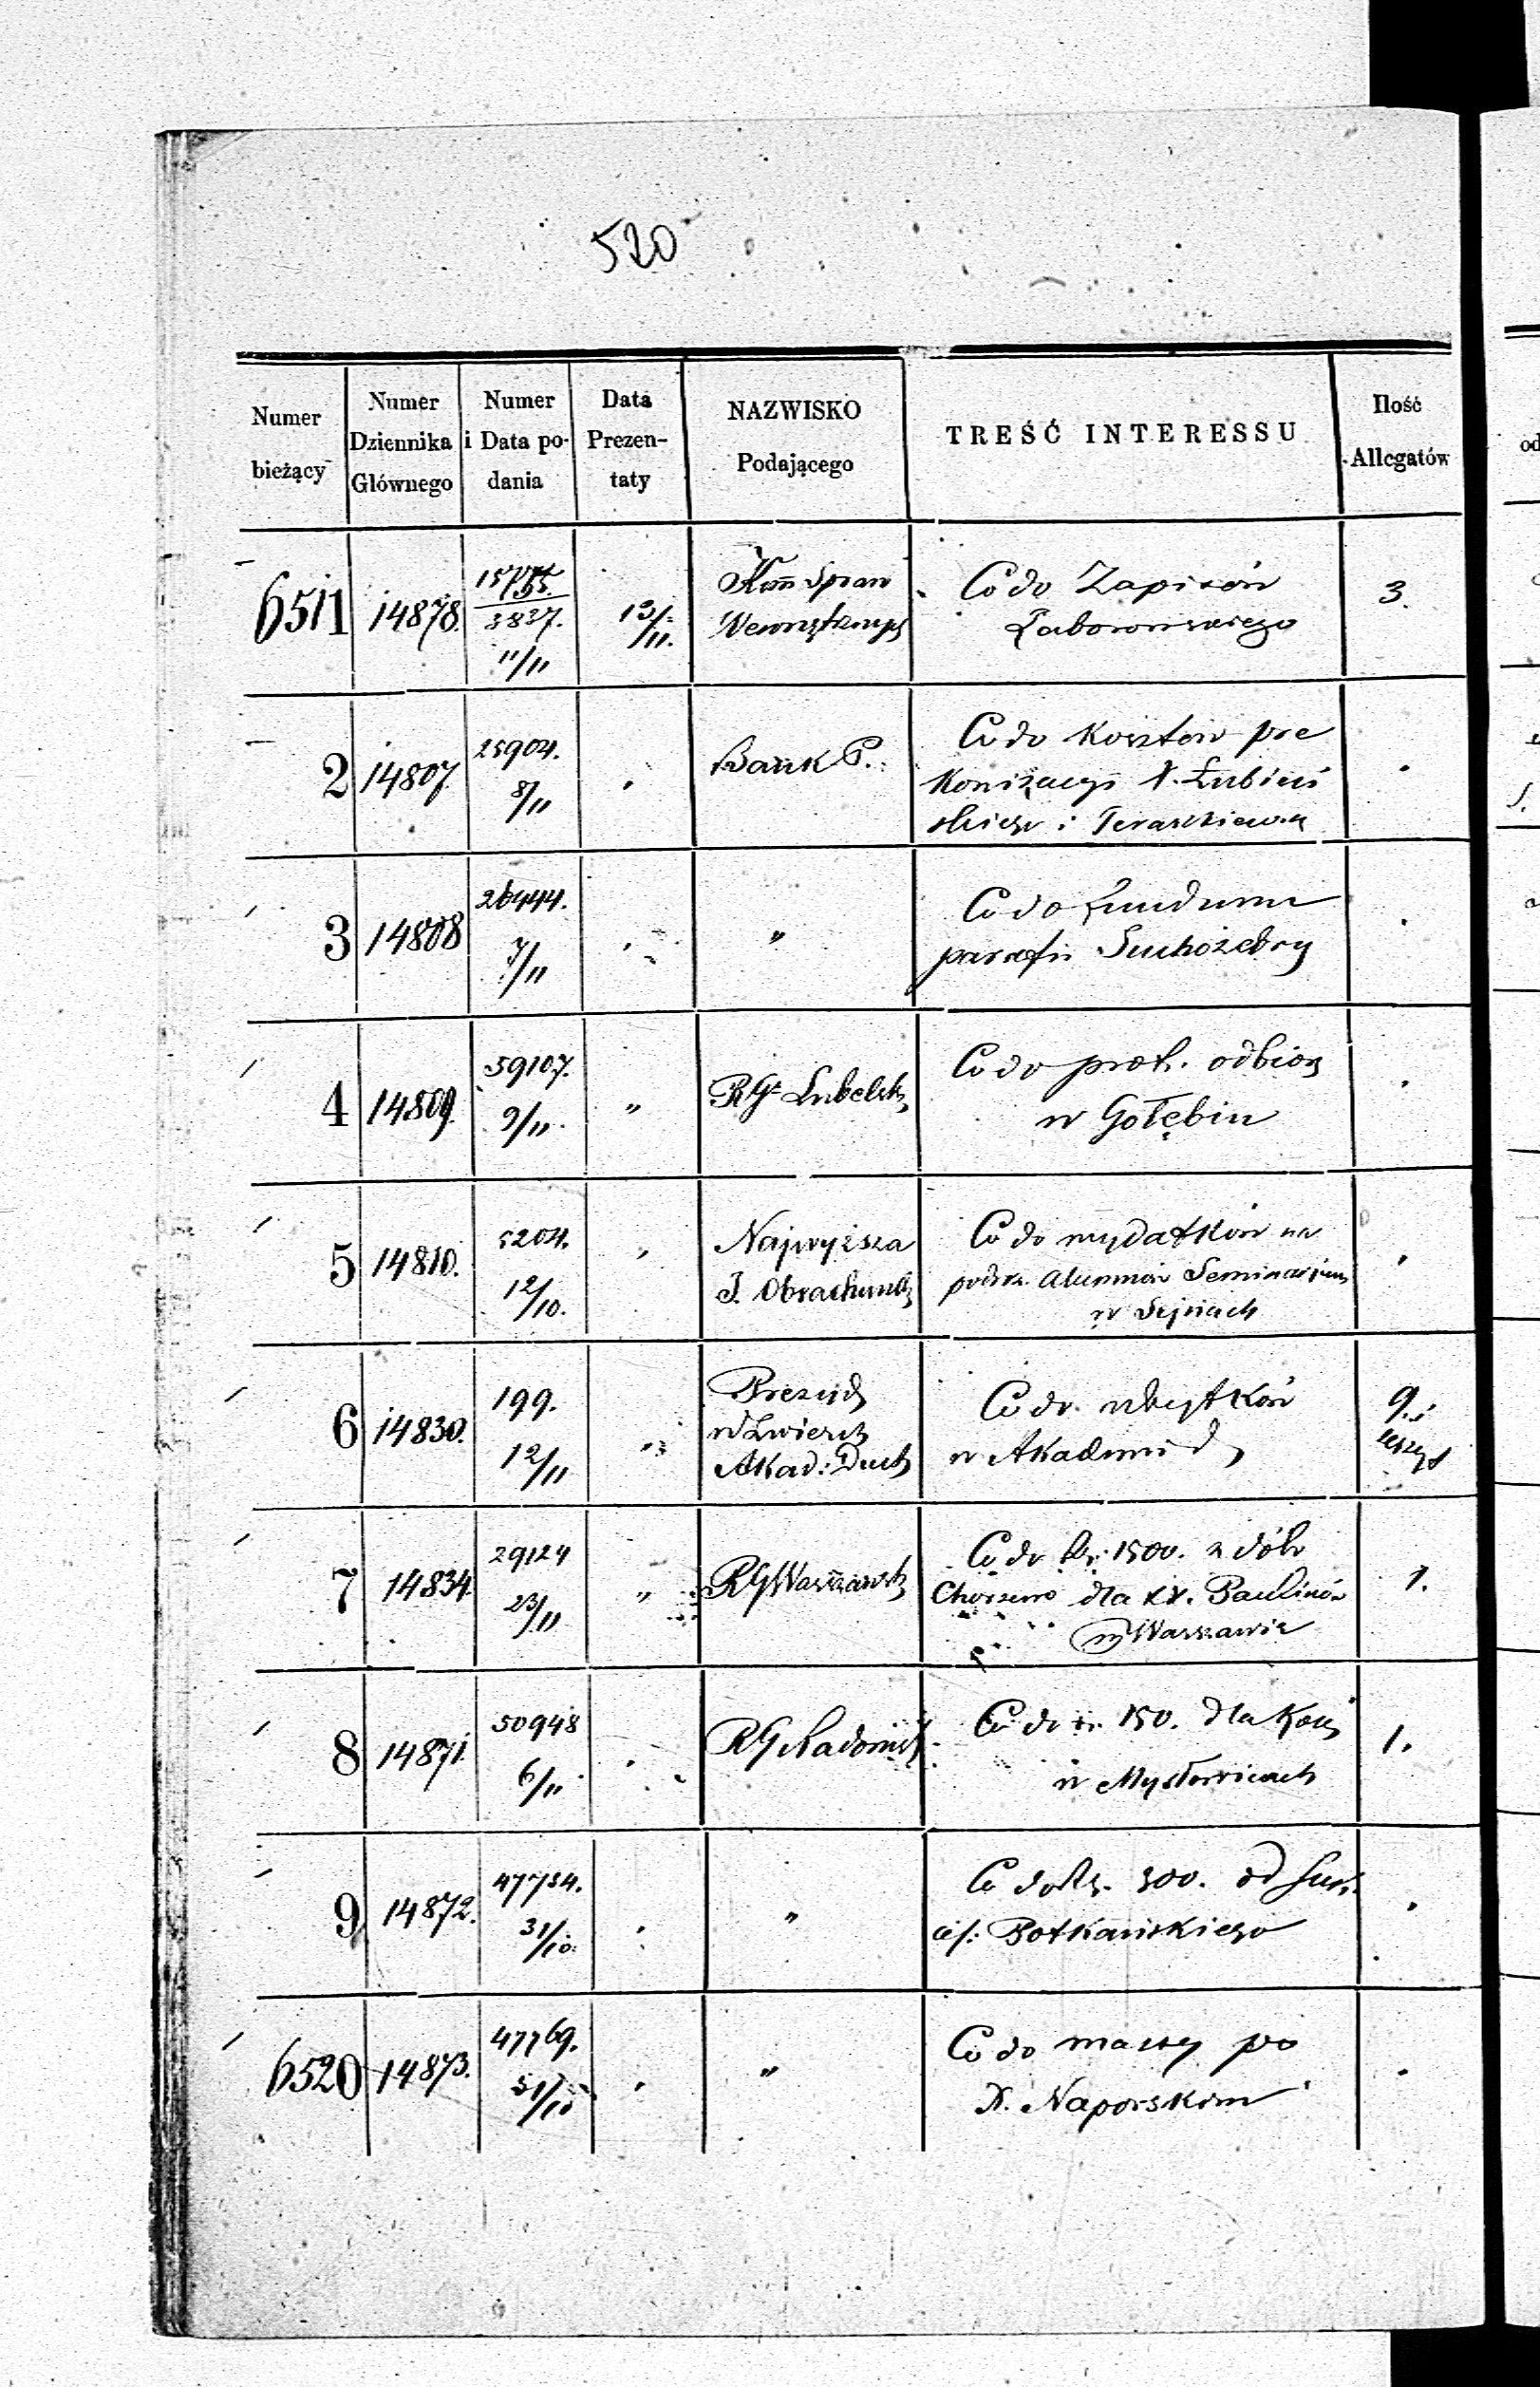 520
Numer bieżący | Numer Dziennika Głównego | Numer i Data podania | Data Prezentaty | NAZWISKO Podającego | TREŚĆ INTERESSU | Ilość Allegatów
6511 | 14878. | 3837. 11/11 | 13/11. | Kom Spraw | Co do Zapisów | 3.
Wewnętrznych
2 | 14807 | 25904. 8/11 | Bank P. | Co do Kosztów pre
konizacyi X. Łubień
skiego i Teraszkiewicza
3 | 14808 | 26444. 7/11 | " | Co do funduszu
parafii Suchożebry
4 | 14809. | 59107. 9/11 | " | RG Lubelsk | Co do prot. odbior
w Gołębiu
5 | 14810. | 5204. 12/10. | Najwyższa | Co do wydatków na
I. Obrachunk | alumnów Seminarium
w Sejnach
6 | 14830. | 199. 12/11 | " | Prezyd | Co do ubytków | 9.
w Zwierz | w Akademii d
Akad: Duch
7 | 14834. | 29124 23/11 | " | RG Warszawsk | Co do 1500. z dóbr | 1.
dla XX. Paulinów
w Warszawie
8 | 14871. | 50948 6/11 | RG Radomsk | Co do 150. dla Koś | 1.
w Mysłowicach
9 | 14872. | 47754. 31/10. | " | Co do 300. od Suk
ces: Potkańskiego
6520 | 14873. | 47769. 31/10 | " | Co do massy po
X. Naporskim